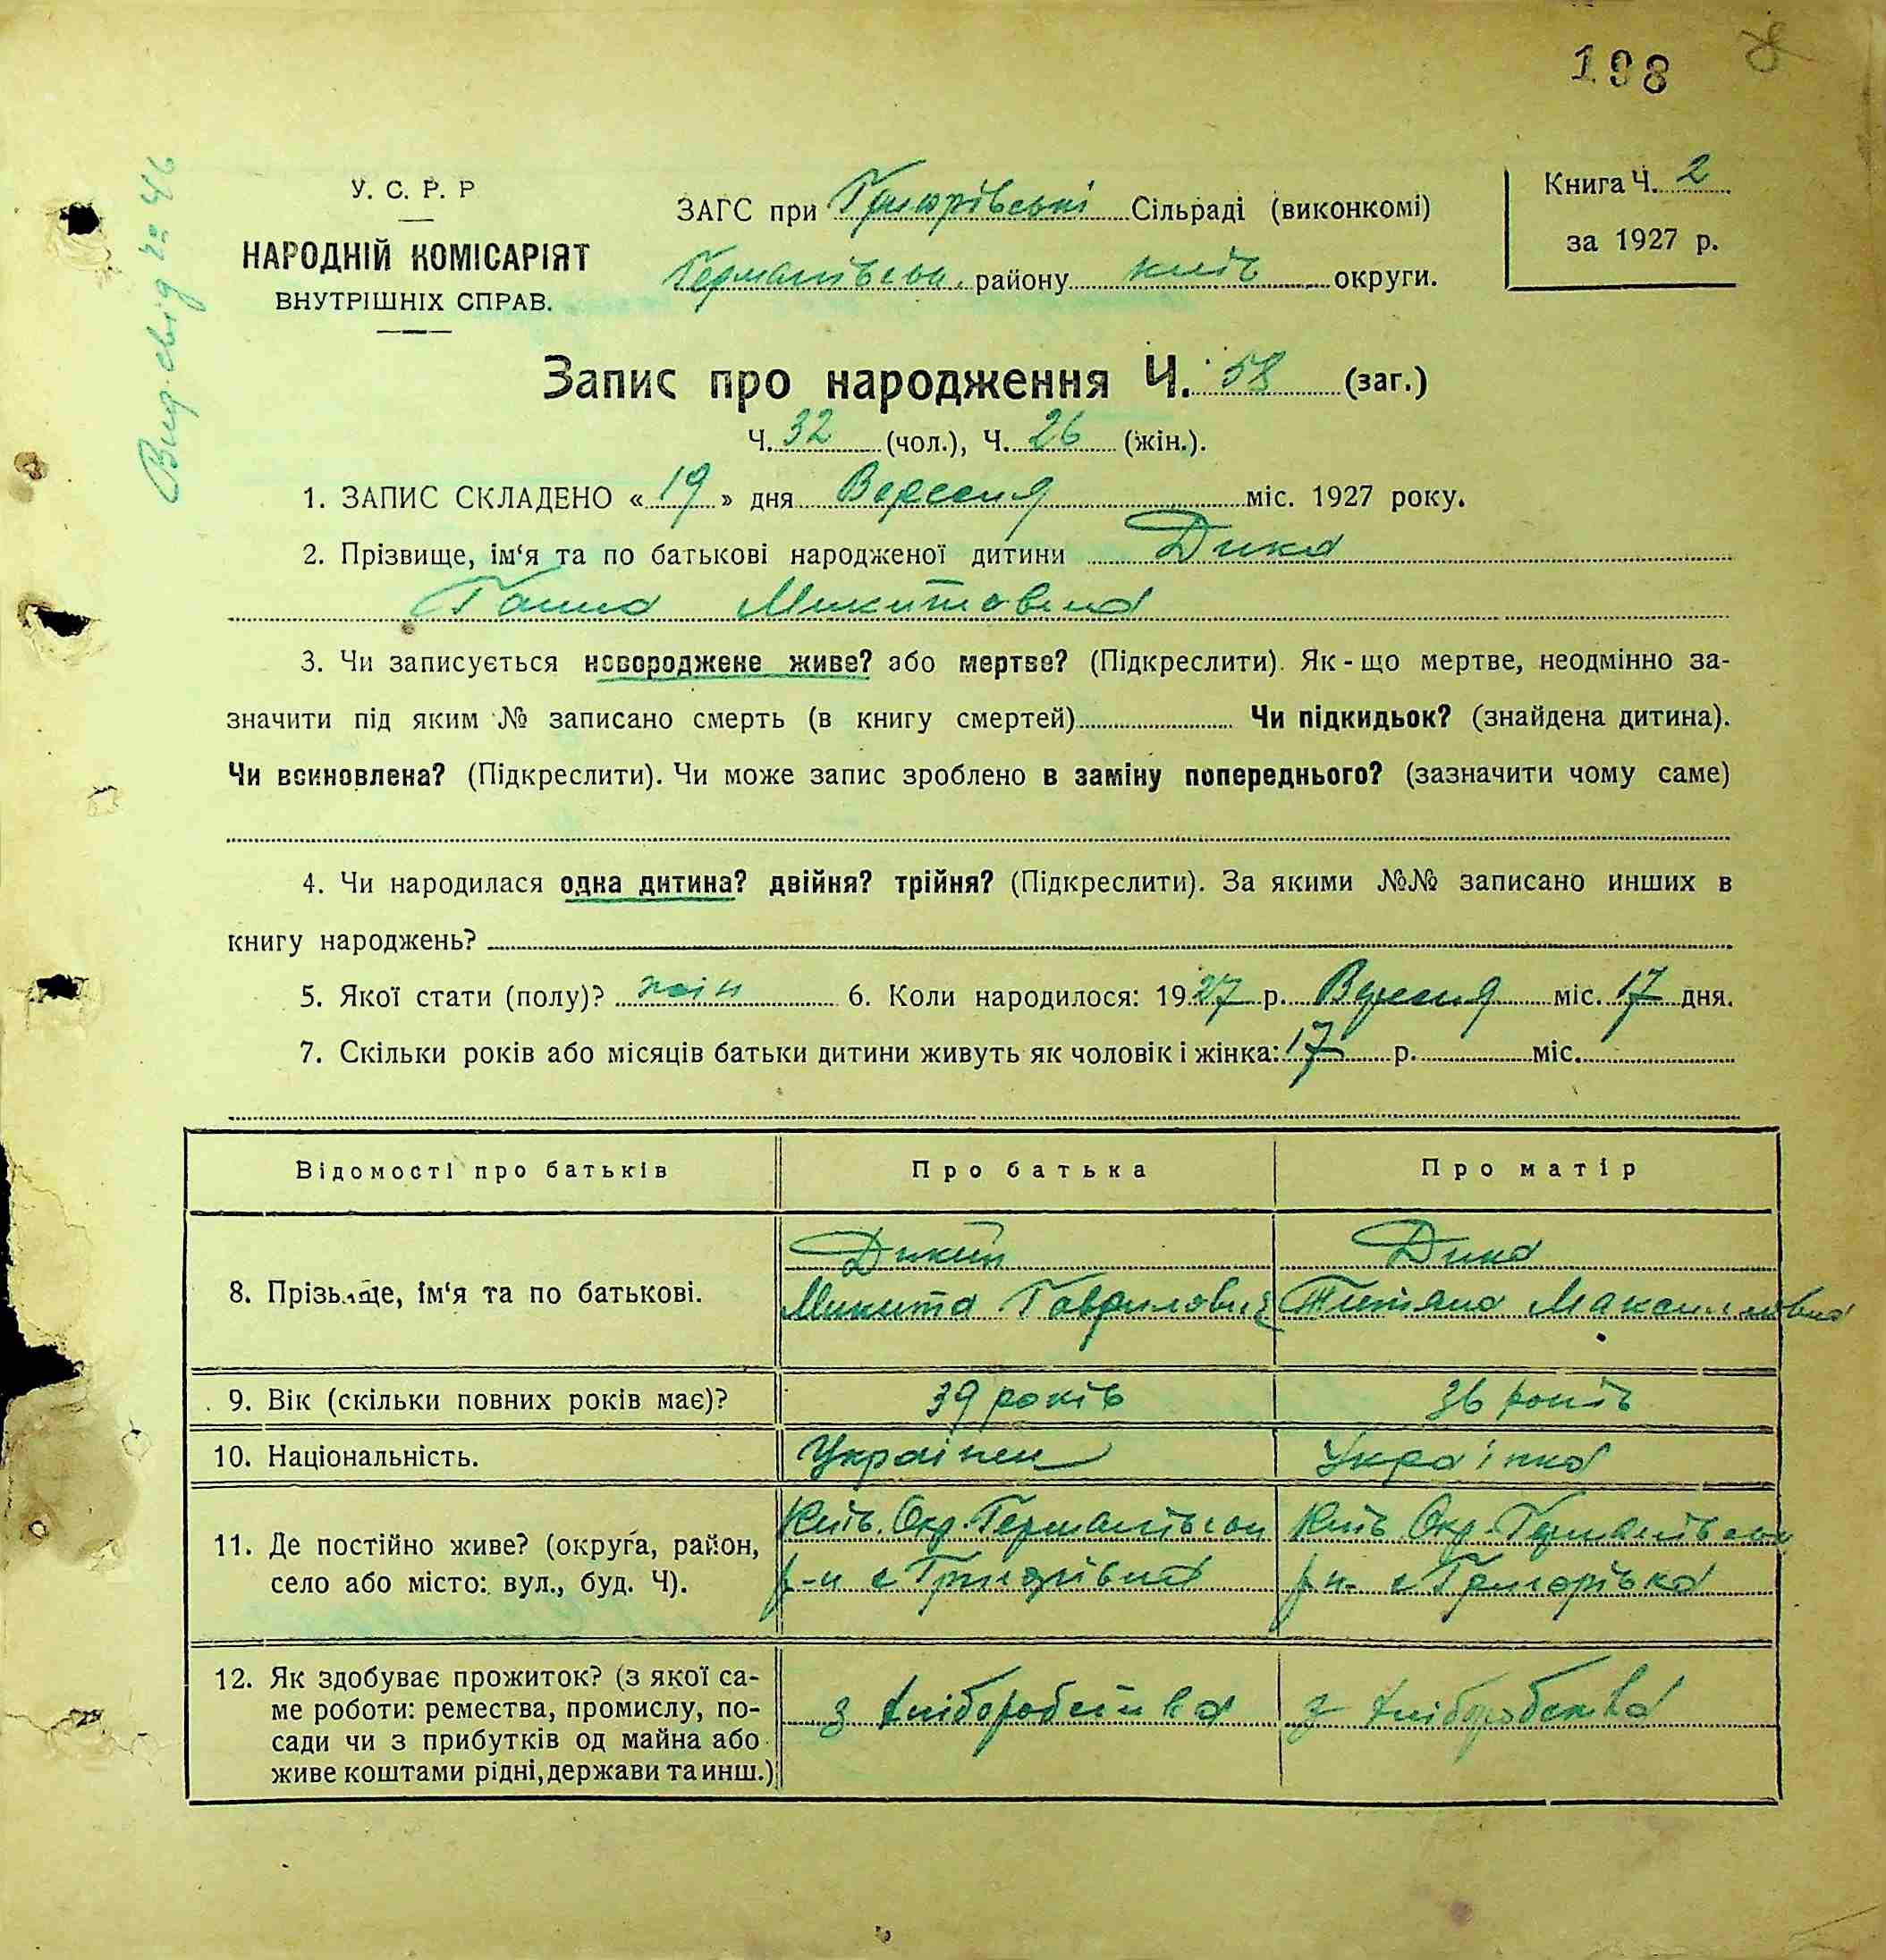 198
Вид. свід № 46
У. С. Р. Р
НАРОДНІЙ КОМІСАРІЯТ
ВНУТРІШНІХ СПРАВ.
ЗАГС при Григорівські Сільраді (виконкомі)
Германівськ. району Київ округи.
Книга Ч. 2
за 1927 р.
Запис про народження Ч. 58 (заг.)
Ч. 32 (чол.), Ч. 26 (жін.).
1. ЗАПИС СКЛАДЕНО «19» дня Вересня міс. 1927 року.
2. Прізвище, ім‘я та по батькові народженої дитини Дика
Ганна Микитовна
3. Чи записується новороджене живе? або мертве? (Підкреслити). Як-що мертве, неодмінно за-
значити під яким № записано смерть (в книгу смертей) Чи підкидьок? (знайдена дитина).
Чи всиновлена? (Підкреслити). Чи може запис зроблено в заміну попереднього? (зазначити чому саме)
4. Чи народилася одна дитина? двійня? трійня? (Підкреслити). За якими №№ записано инших в
книгу народжень?
5. Якої стати (полу)? жін 6. Коли народилося: 1927 р. Вересня міс. 17 дня.
7. Скільки років або місяців батьки дитини живуть як чоловік і жінка: 17 р. міс.
Відомості про батьків Про батька Про матір
8. Прізвище, ім‘я та по батькові.
Дикий
Микита Гаврилович
Дика
Титяна Максимовна
9. Вік (скільки повних років має)? 39 років 36 років
10. Національність. Українец Українка
11. Де постійно живе? (округа, район,
село або місто: вул., буд. Ч).
Київ. Окр. Германівськ
р-н с Григорівка
Київ Окр. Германівськ
р-н с Григорівка
12. Як здобуває прожиток? (з якої са-
ме роботи: ремества, промислу, по-
сади чи з прибутків од майна або
живе коштами рідні, держави та инш.)
з хліборобства
з хліборобства